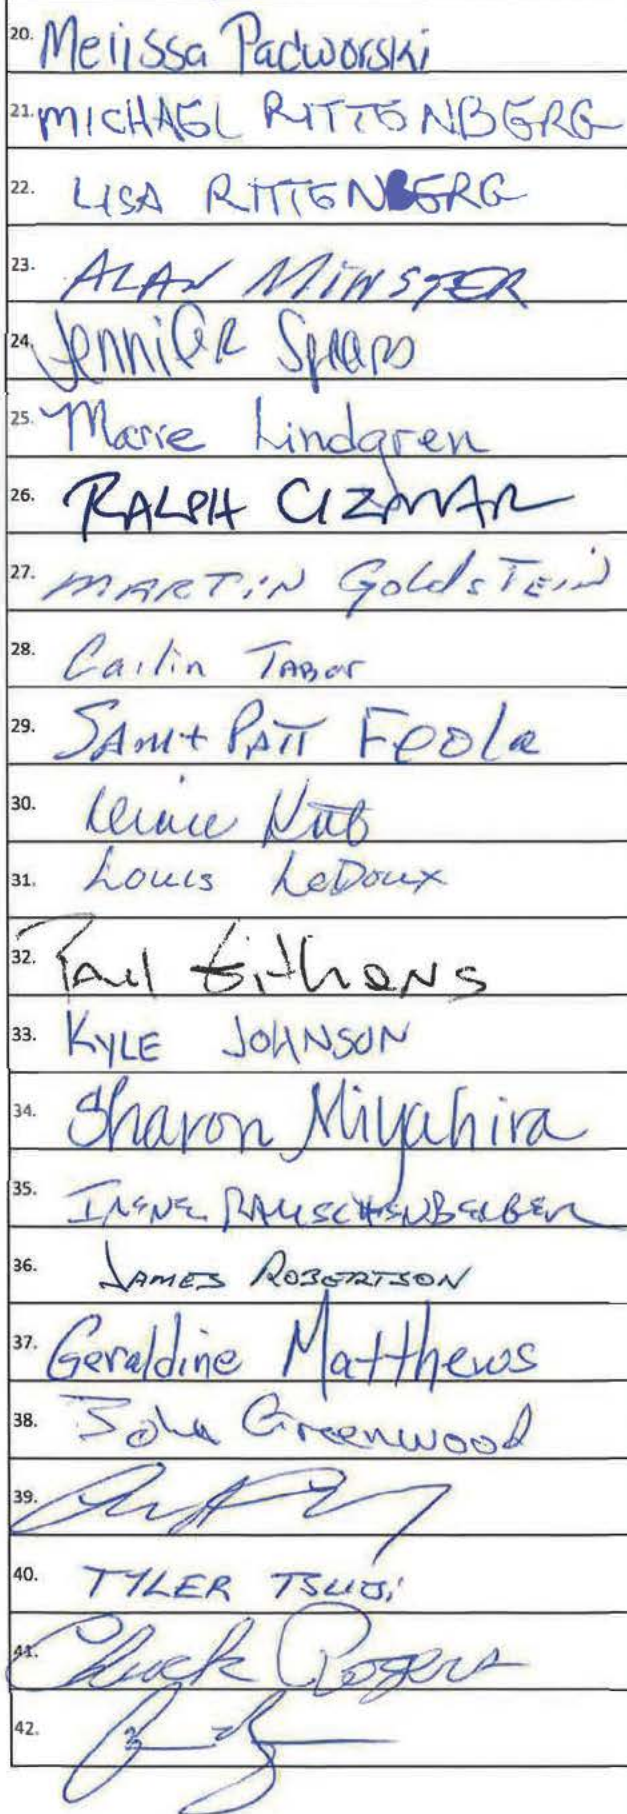 20. Melissa Padworski
21. MICHAEL RITTENBERG
22. LISA RITTENBERG
23. ALAN MINSTER
24. Jennifer Spears
25. Marie Lindgren
26. RALPH CIZMAR
27. MARTIN GoldsTEIN
28. Cailin TABOR
29. SAM + PATT Feola
30.
31. Louis LeDoux
32. Paul Githens
33. KYLE JOHNSON
34. Sharon Miyahira
35. IRENE RAUSCHENBERGER
36. JAMES ROBERTSON
37. Geraldine Matthews
38. John Greenwood
39.
40. TYLER TSUJi
41. Chuck Rogers
42.